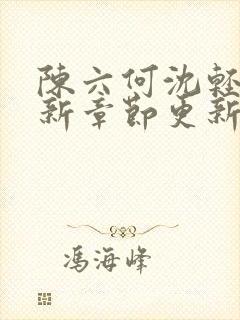 陳六何沈輕
新章節更新
馮海峰